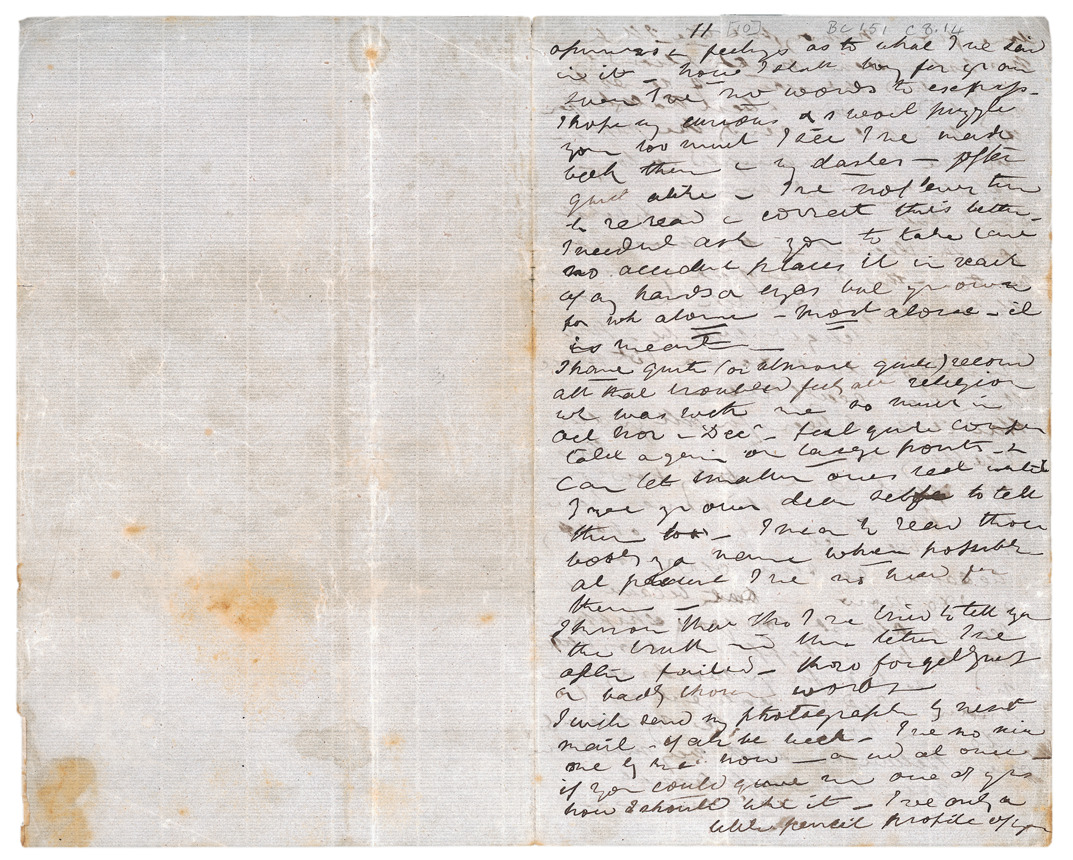 11 [10] BC 151 C8.14
opinions & feelings as to what I've said
in it – how I shall long for yr own
even I've no words to express.
I hope my curious & s would puzzle
you too much I see I've made
both them & my dashes – often
quite alike – I've not even time
to reread & correct this letter.
I needn't ask you to take care
no accident places it in reach
of any hands or eyes but yr own
for wh alone – most alone – it
is meant –
I have quite (or almost quite)
all that troubled feeling abt religion
wh was with me so much in
Oct Nov – Dec – feel quite
again on large points – &
can let smaller ones rest until
I see yr own dear self to tell
them to – I mean to read those
books you name when possible
at present I've no head for
them –
I know that tho I've tried to tell you
the truth in this letter I've
often failed –
or badly chosen words
I will send my photograph by next
mail – if all be well – I've no
one by me now – and at once
if you could give me one of yrs
how I should like it – I've only a
little pencil profile of you